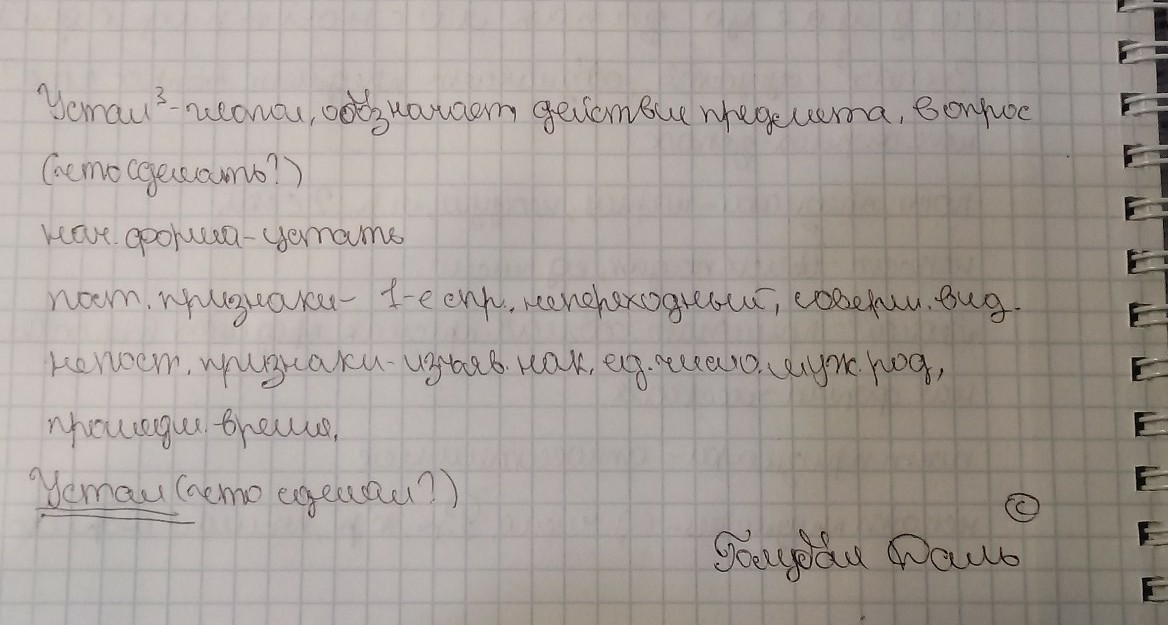 Устал³ - глагол, обозначает действие предмета, вопрос
(что сделать?)
нач. форма - устать
пост. признаки - 1-е спр., непереходный, соверш. вид.
непост. признаки - изъяв. нак, ед. число, муж. род,
прошедш. время.
Устал (что сделал?)
©
Голубая Даль